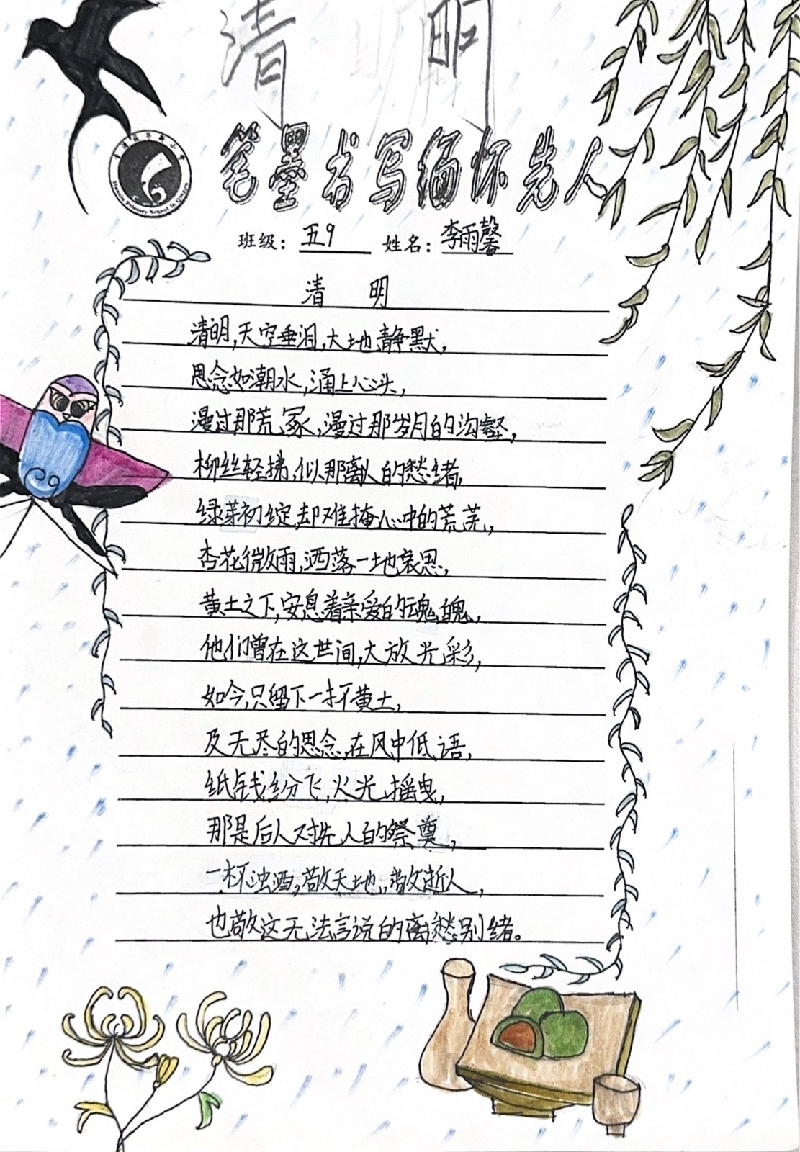 清明
笔墨书写缅怀先人
班级：五9 姓名：李雨馨
清 明
清明，天空垂泪，大地静默，
思念如潮水，涌上心头，
漫过那荒冢，漫过那岁月的沟壑，
柳丝轻拂，似那离人的愁绪，
绿芽初绽，却难掩心中的荒芜，
杏花微雨，洒落一地哀思，
黄土之下，安息着亲爱的魂魄，
他们曾在这世间，大放光彩，
如今，只留下一抔黄土，
及无尽的思念，在风中低语，
纸钱纷飞，火光摇曳，
那是后人对先人的祭奠，
一杯浊酒，敬天地，敬逝人，
也敬这无法言说的离愁别绪。